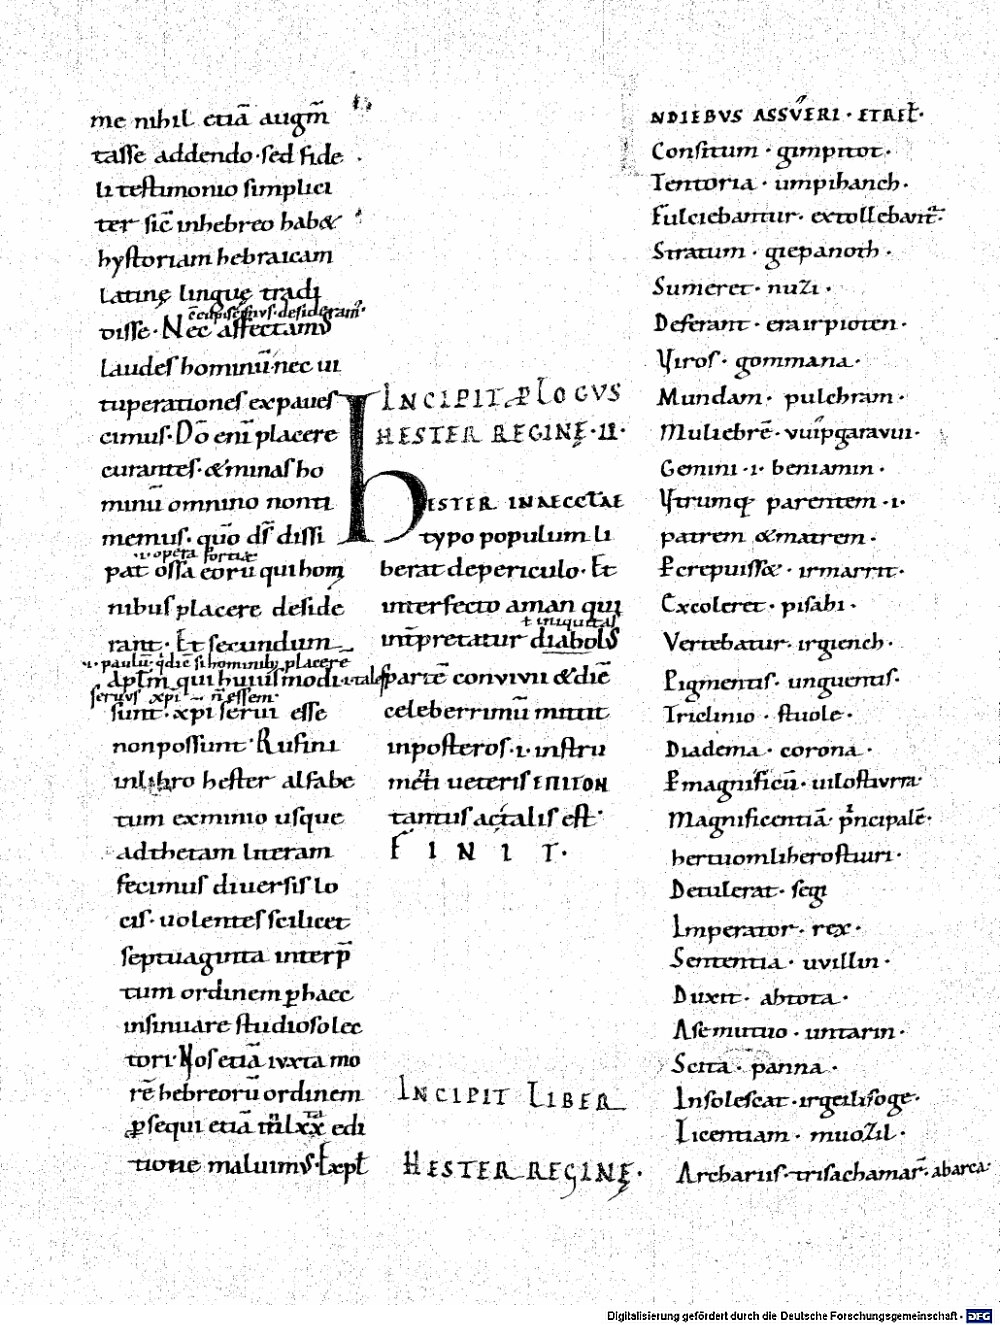 me nihil etiā augm̄
tasse addendo · sed fide
li testimonio simplici
ter sic̄ inhebreo hab&
hystoriam hebraicam
latinę linguę tradi
disse · Nec affectamus
laudes hominū · nec ui
tuperationes expaues
cimus · Dō enī placere
curantes · &minas ho
minū omnino nonti
memus · quō ds̄ dissi
·i· opera fortia
pat ossa eorū qui hom
nibus placere deside
rant · Et secundum
·i· paulū · qdiē si hominib; placere
Aptm̄ qui huiusmodi ·i· tales
seruus xpī n̄ essem ·
sunt · xpi serui esse
nonpossunt · Rufini
inlibro hester alfabe
tum exminio usque
adthetam literam
fecimus diuersis lo
cis · uolentes scilicet
septuaginta interp̄
tum ordinem ꝑhaec
insinuare studiosolec
tori · Nos etiā iuxta mo
rē hebreorū ordinem
ꝓsequi etiā in lxx edi
tione maluimus · Expł
INCIPIT PLOGVS
HESTER REGINĘ · II ·
HESTER INAECCTAE
typo populum li
berat depericulo · Et
interfecto aman qui
ł iniquitas
int̄pretatur diabolus
partē conuiuii &diē
celeberrimū mittit
inposteros · i · instru
mēti ueteris ΕΠΙΤΟΝ
tantus actalis est ·
FINIT ·
INCIPIT LIBER
HESTER REGINĘ ·
NDIEBVS ASSVERI · ETREŁ ·
Consitum · gimpitot ·
Tentoria · umpihanch ·
Fulciebantur · extollebant̄ ·
Stratum · giepanoth ·
Sumeret · nuzi ·
Deferant · erairpioten ·
Viros · gommana ·
Mundam · pulchram ·
Muliebrē · vuipgaravui ·
Gemini · i · beniamin ·
Vtrumq; parentem · i ·
patrem &matrem ·
Pcrepuiss& · irmarrit ·
Excoleret · pisahi ·
Vertebatur · irgiench ·
Pigmentis · unguentis ·
Triclinio · stuole ·
Diadema · corona ·
Pmagnificū · uilostiurra ·
Magnificentiā · principalē ·
hertuomliherostuuri ·
Detulerat · segi
Imperator · rex ·
Sententia · uvillin ·
Duxit · ahtota ·
Asemutuo · untarin ·
Scita · panna ·
Insolescat · irgeilisoge ·
Licentiam · muozil ·
Archariis · trisachamar̄ · abarca ·
Digitalisierung gefördert durch die Deutsche Forschungsgemeinschaft - DFG